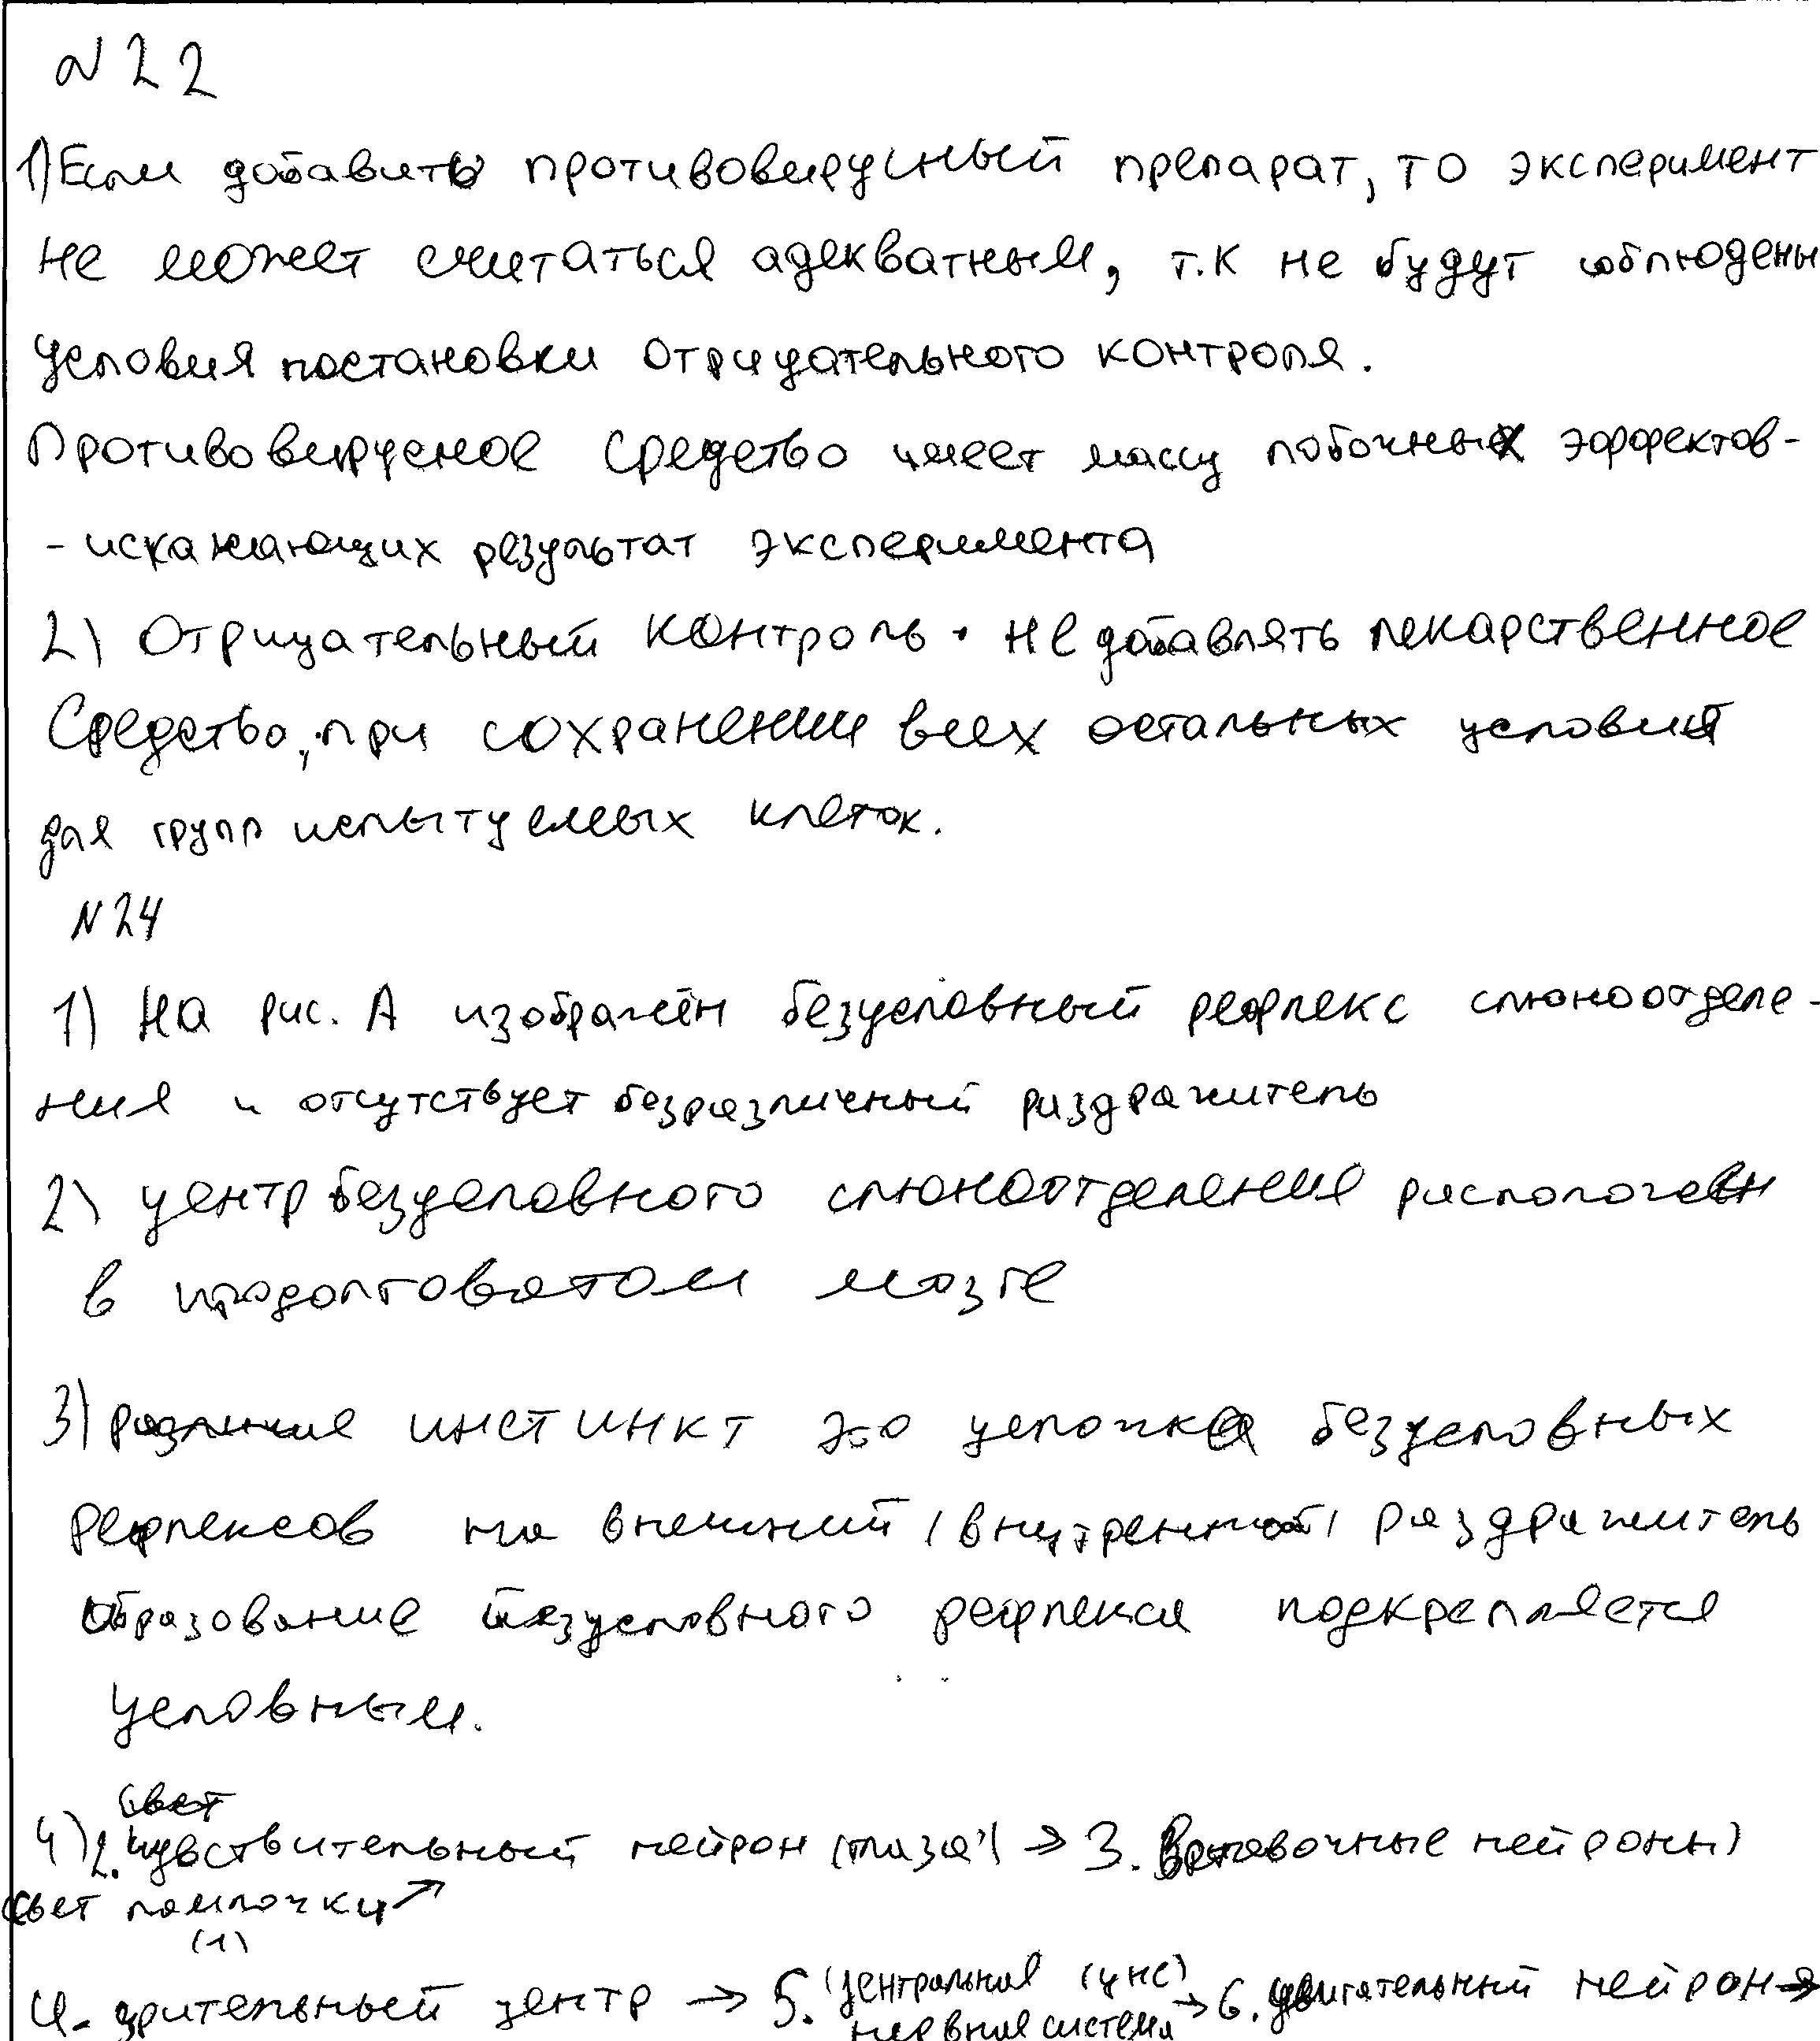 №22
1) Если добавить противовирусный препарат, то эксперимент
не может считаться адекватным, т.к не будут соблюдены
условия постановки отрицательного контроля.
Противовирусное средство имеет массу побочных эффектов-
- искажающих результат эксперимента
2) Отрицательный контроль • не добавлять лекарственное
Средство, при сохранении всех остальных условий
для групп испытуемых клеток.
№24
1) На рис. А изображён безусловный рефлекс слюноотделе-
ния и отсутствует безразличный раздражитель
2) центр безусловного слюноотделения расположен
в продолговатом мозге
3) инстинкт это цепочка безусловных
рефлексов на внешний (внутренний) раздражитель
образование безусловного рефлекса подкрепляется
условным.
свет
4) 2. чувствительный нейрон (глаза) → 3. Вставочные нейроны)
свет лампочки ↗
(1)
4. зрительный центр → 5. (центральная (цнс) → 6. двигательный нейрон →
нервная система